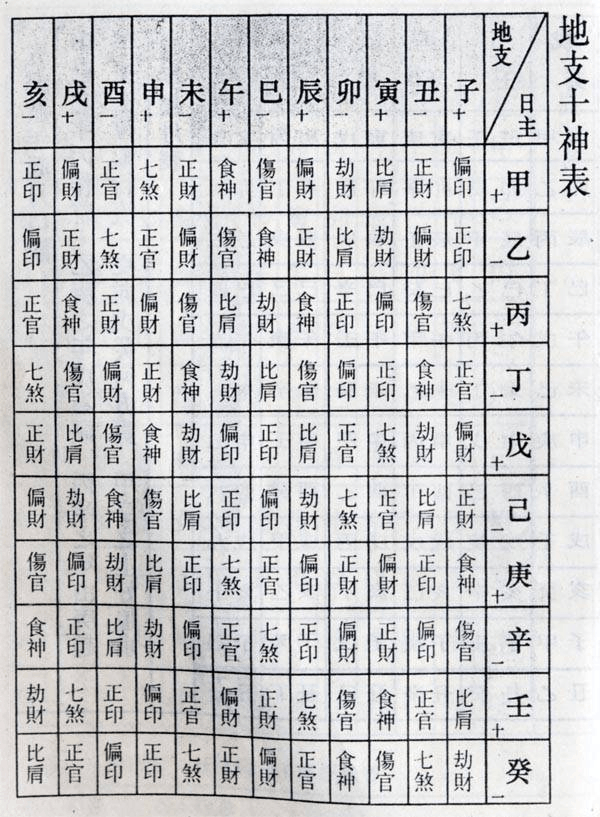 地支十神表
日主 地支 子+ 丑一 寅+ 卯一 辰+ 巳一 午+ 未一 申+ 酉一 戌+ 亥一
甲+ 偏印 正財 比肩 劫財 偏財 傷官 食神 正財 七煞 正官 偏財 正印
乙一 正印 偏財 劫財 比肩 正財 食神 傷官 偏財 正官 七煞 正財 偏印
丙+ 七煞 傷官 偏印 正印 食神 劫財 比肩 傷官 偏財 正財 食神 正官
丁一 正官 食神 正印 偏印 傷官 比肩 劫財 食神 正財 偏財 傷官 七煞
戊+ 偏財 劫財 七煞 正官 比肩 正印 偏印 劫財 食神 傷官 比肩 正財
己一 正財 比肩 正官 七煞 劫財 偏印 正印 比肩 傷官 食神 劫財 偏財
庚+ 食神 正印 偏財 正財 偏印 正官 七煞 正印 比肩 劫財 偏印 傷官
辛一 傷官 偏印 正財 偏財 正印 七煞 正官 偏印 劫財 比肩 正印 食神
壬+ 比肩 正官 食神 傷官 七煞 正財 偏財 正官 偏印 正印 七煞 劫財
癸一 劫財 七煞 傷官 食神 正官 偏財 正財 七煞 正印 偏印 正官 比肩